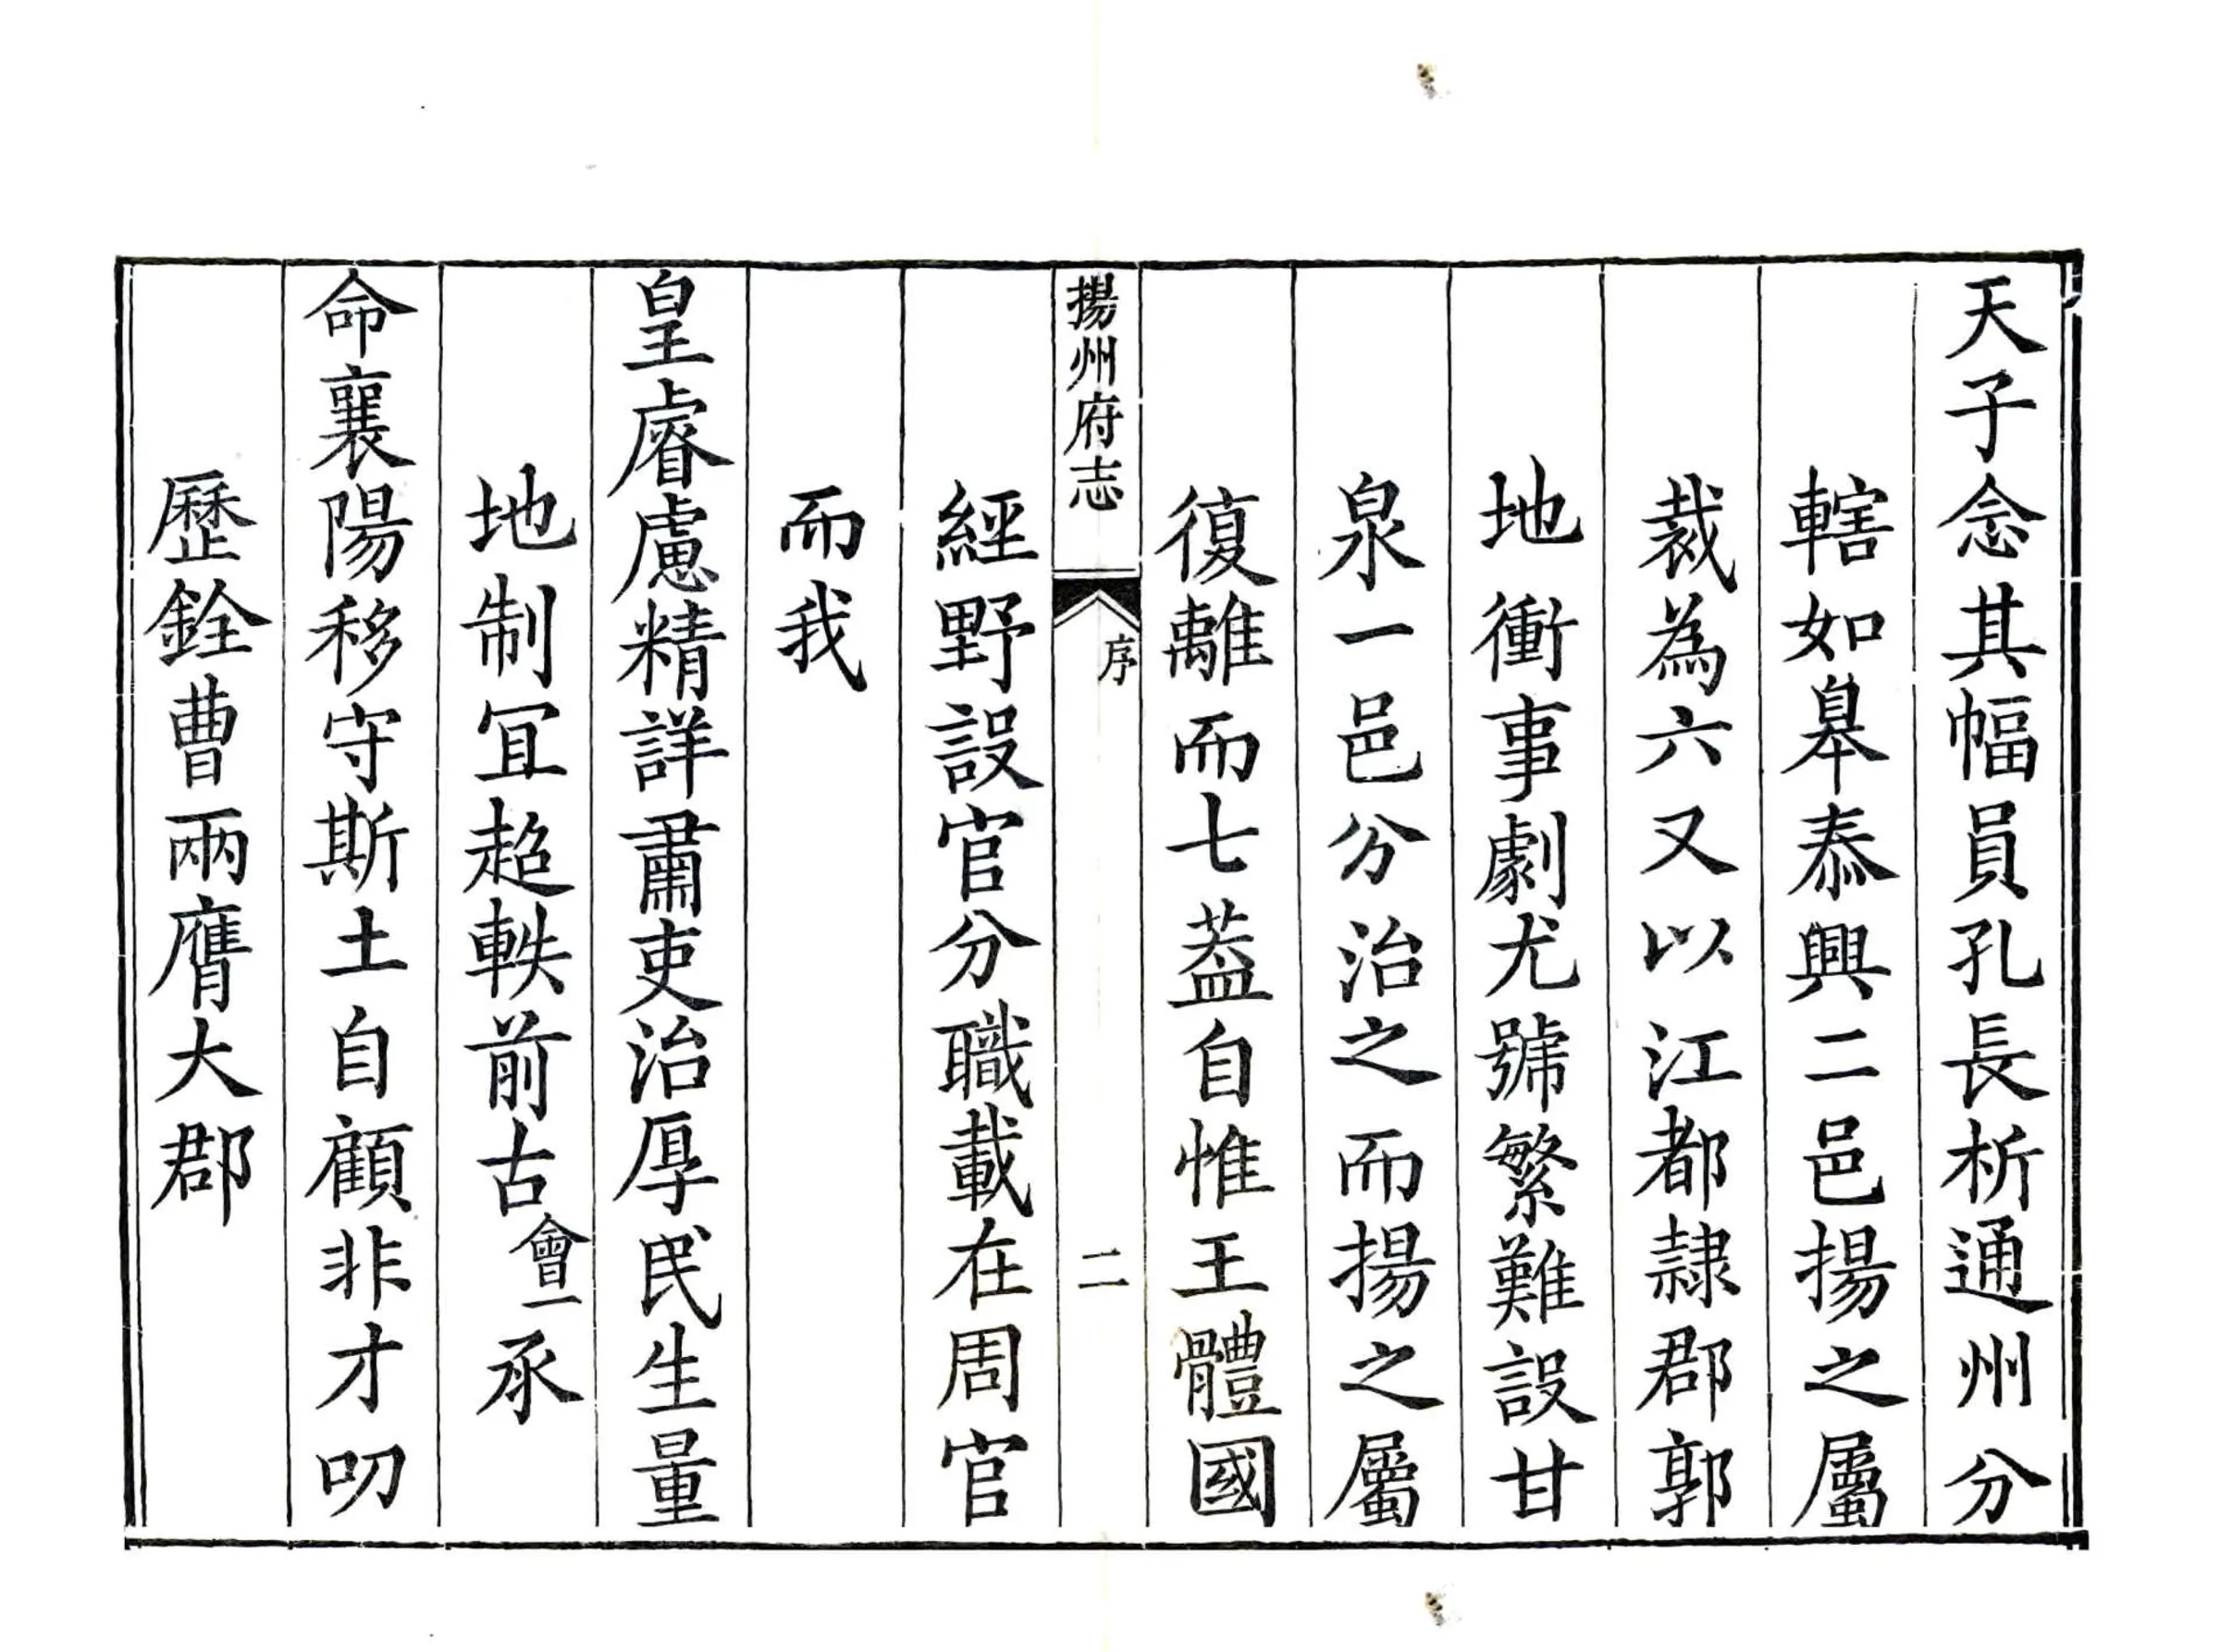 天子念其幅員孔長析通州分
轄如皋泰興二邑揚之屬
裁為六又以江都隷郡郭
地衝事劇尤號繁難設甘
泉一邑分治之而揚之屬
復離而七葢自惟王體國
揚州府志
序
二
經野設官分職載在周官
而我
皇睿慮精詳肅吏治厚民生量
地制冝超軼前古會一承
命襄陽移守斯土自顧非才叨
歷銓曹兩膺大郡